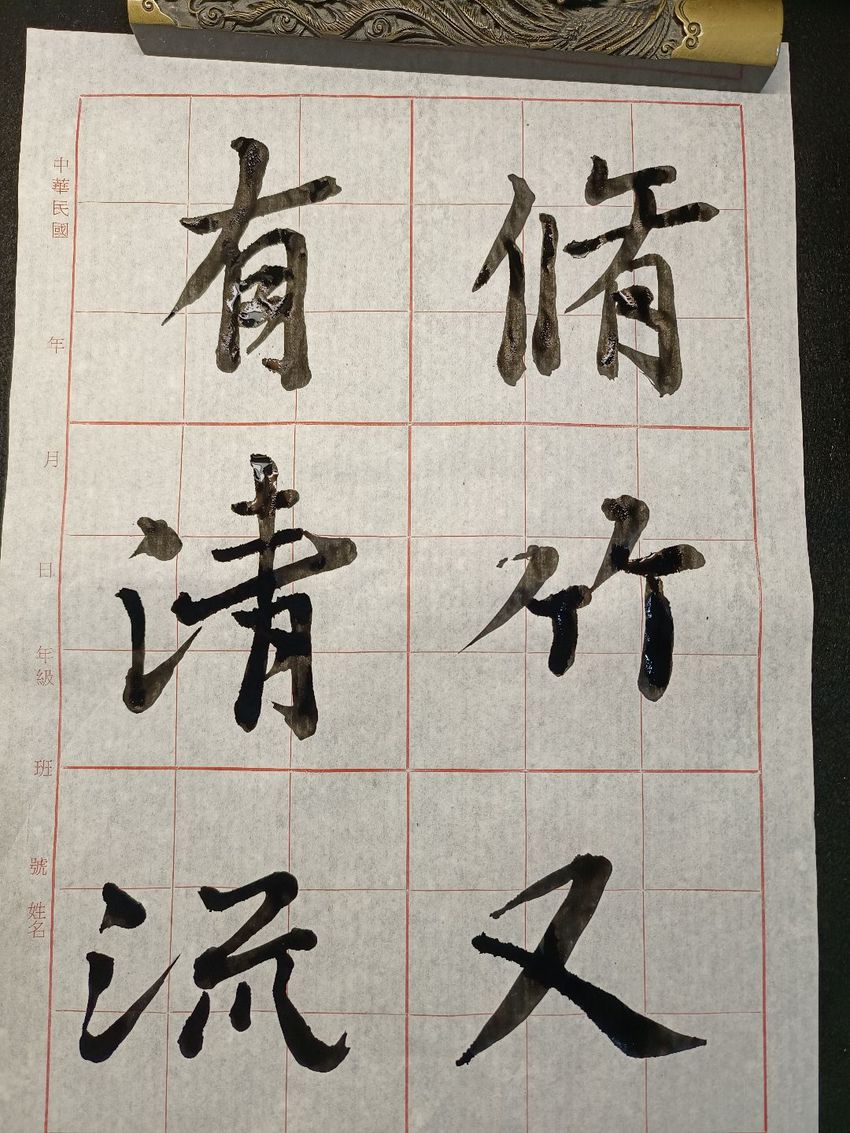 脩竹又
有清流
中華民國 年 月 日 年級 班 號 姓名